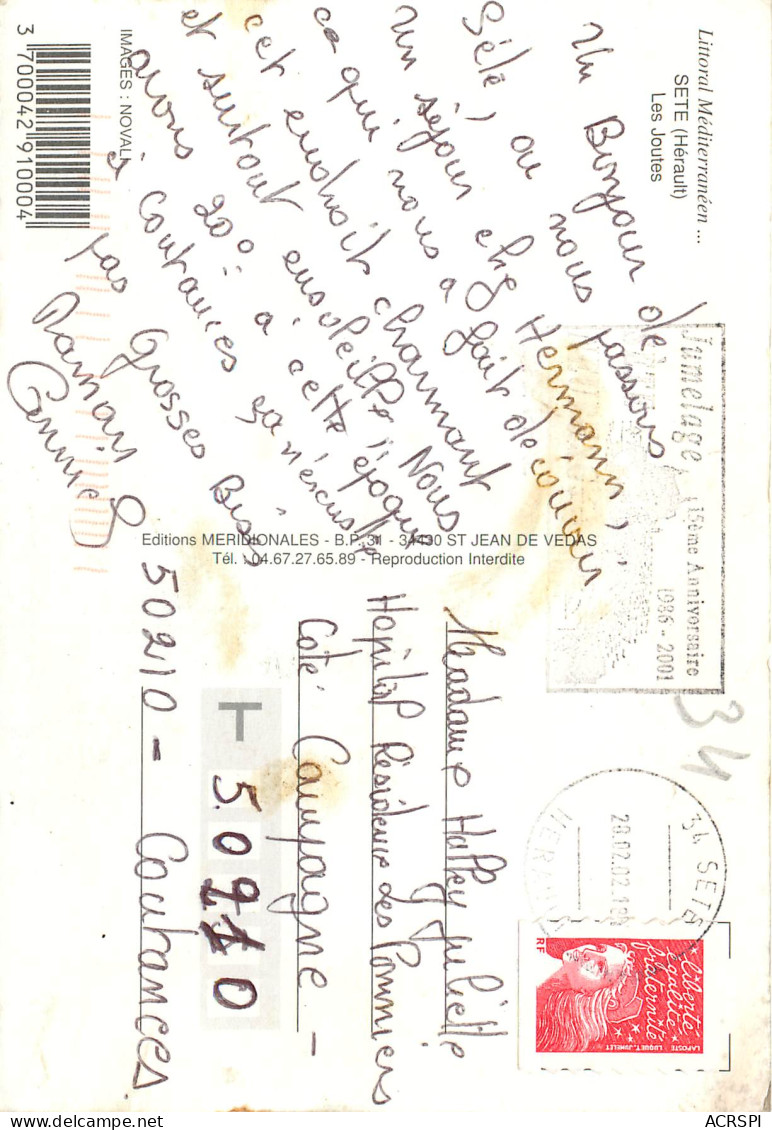 Littoral Méditerranéen ...
SETE (Hérault)
Les Joutes
Un Bonjour de
Sète, ou nous passons
un séjour chez Hermann,
ce qui nous a fait découvrir
cet endroit charmant
et surtout ensoleillé. Nous
avons 20° à cette époque
à Coutances ça n'éxiste
pas Grosses Bises
IMAGES : NOVALI
3 700042 910004
Editions MERIDIONALES - B.P. 31 - 34430 ST JEAN DE VEDAS
Tél. : 04.67.27.65.89 - Reproduction Interdite
Jumelage
15ème Anniversaire
1986 - 2001
34
34 SETE
28.02.02
HERAULT
Liberté
égalité
fraternité
RF
LAPOSTE LUQUET.JUMELET
Madame Halley Juliette
Hopital Résidence des Pommiers
Coté Campagne -
50210
50210 - Coutances
ACRSPI